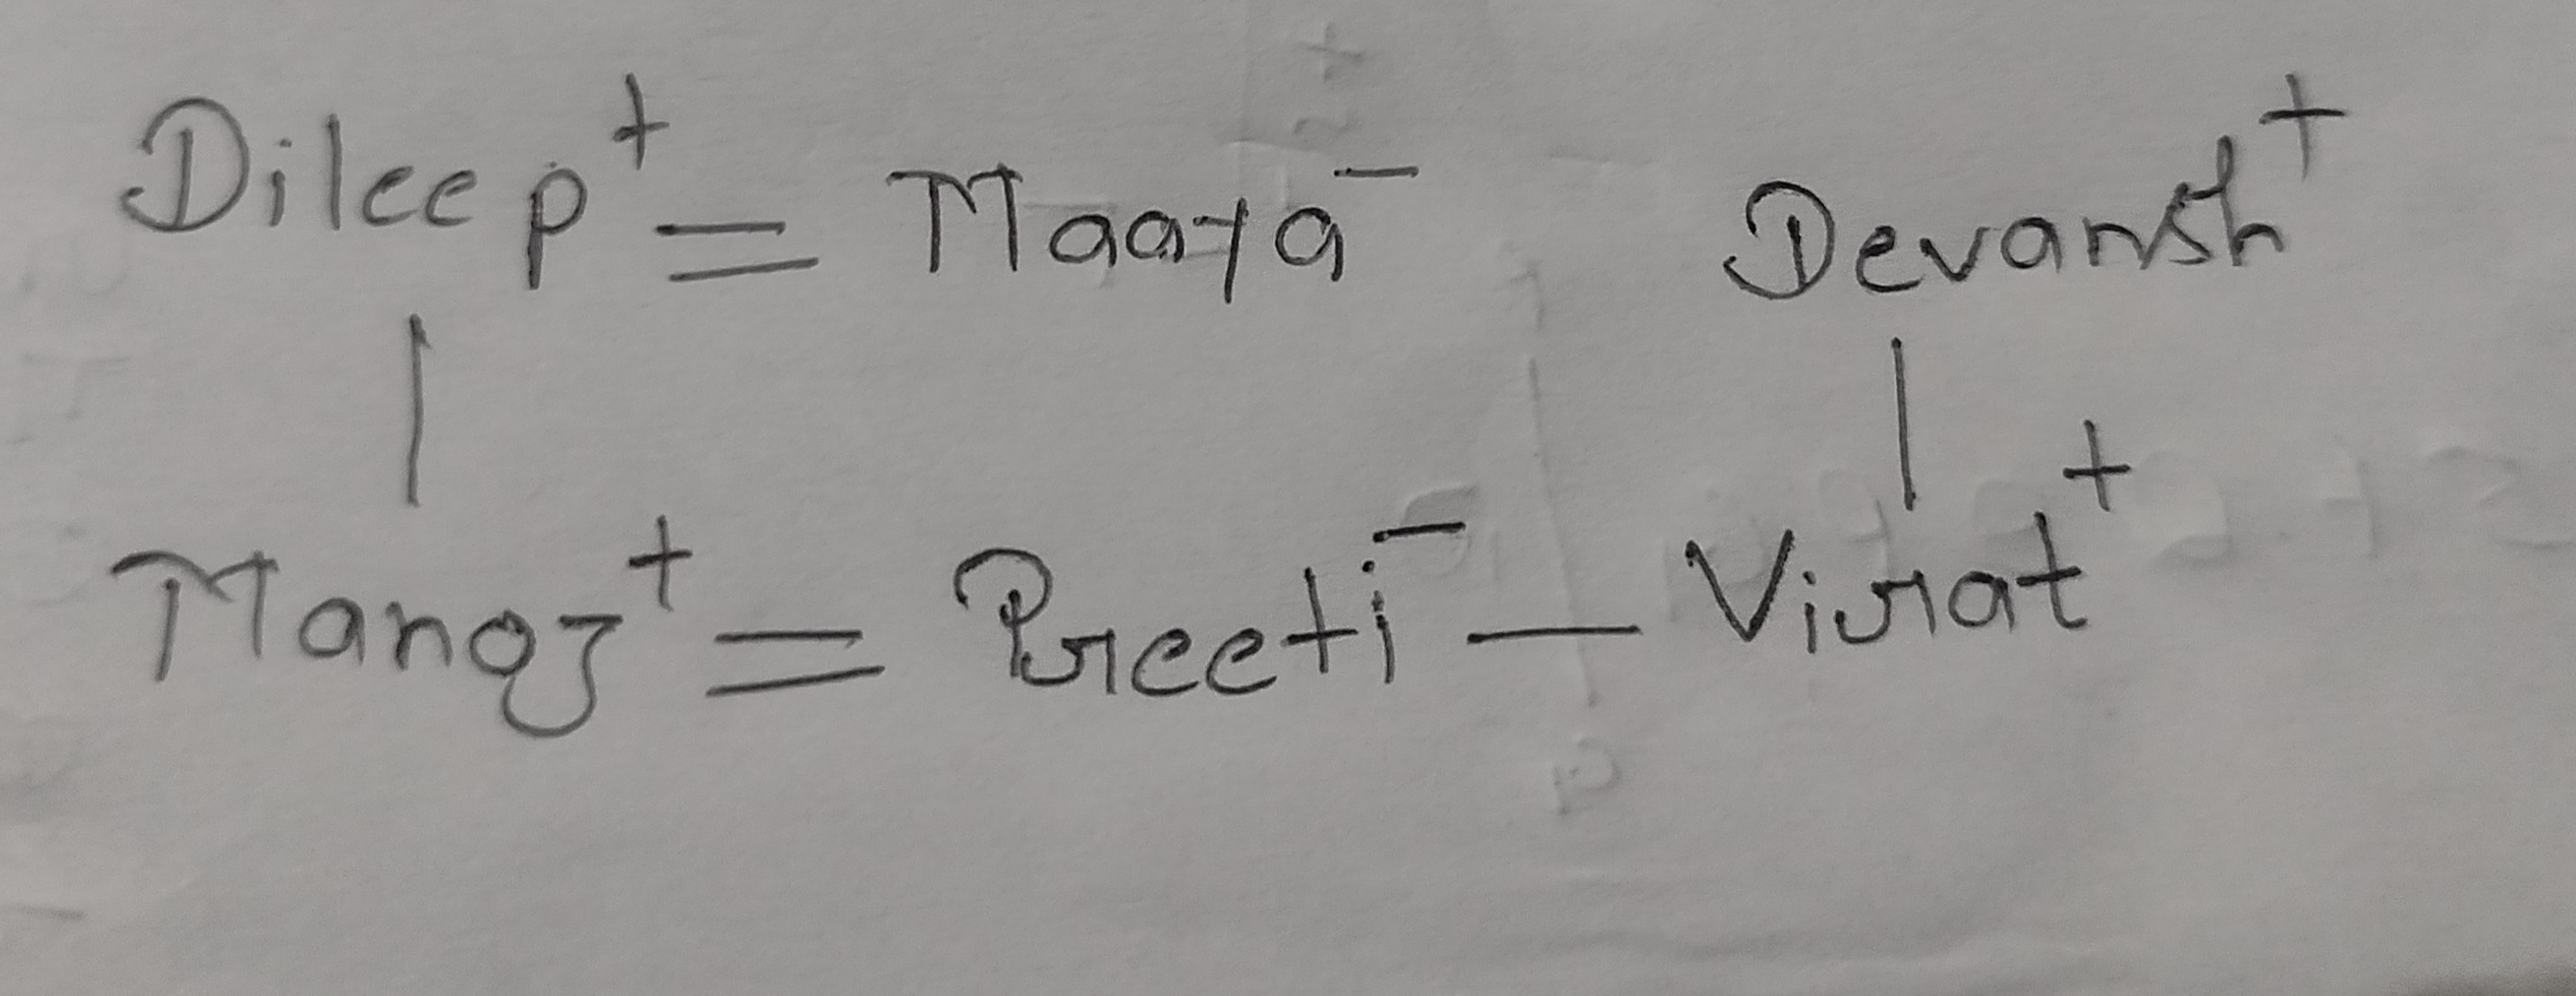 Dileep⁺ = Maaya⁻ Devansh⁺
| |
Manoj⁺ = Preeti⁻ — Virat⁺